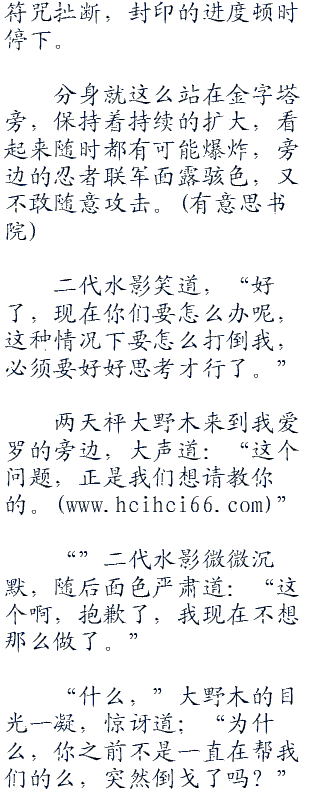 符咒扯断，封印的进度顿时
停下。
分身就这么站在金字塔
旁，保持着持续的扩大，看
起来随时都有可能爆炸，旁
边的忍者联军面露骇色，又
不敢随意攻击。(有意思书
院)
二代水影笑道，“好
了，现在你们要怎么办呢，
这种情况下要怎么打倒我，
必须要好好思考才行了。”
两天秤大野木来到我爱
罗的旁边，大声道：“这个
问题，正是我们想请教你
的。(www.hcihci66.com)”
“”二代水影微微沉
默，随后面色严肃道：“这
个啊，抱歉了，我现在不想
那么做了。”
“什么，”大野木的目
光一凝，惊讶道；“为什
么，你之前不是一直在帮我
们的么，突然倒戈了吗？”